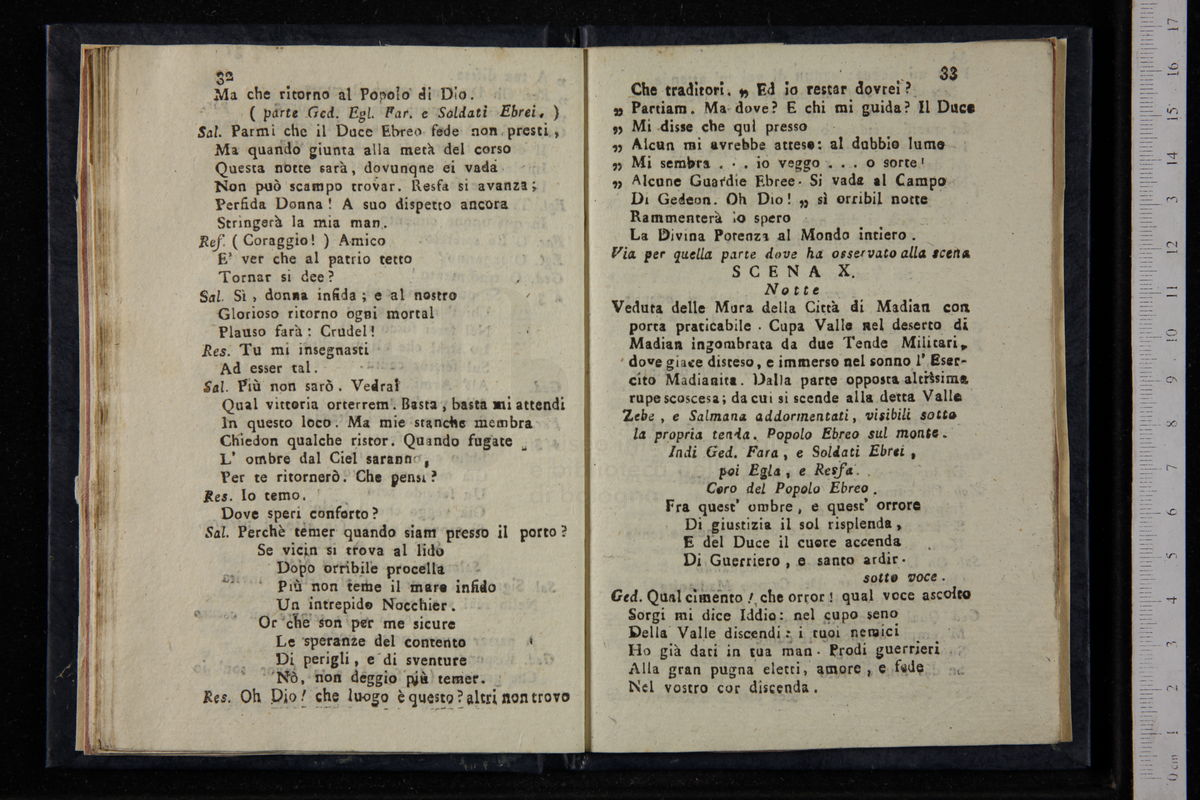 32
Ma che ritorno al Popolo di Dio.
( parte Ged. Egl. Far. e Soldati Ebrei. )
Sal. Parmi che il Duce Ebreo fede non presti,
Ma quando giunta alla metà del corso
Questa notte sarà, dovunqne ei vada
Non può scampo trovar. Resfa si avanza;
Perfida Donna! A suo dispetto ancora
Stringerà la mia man.
Res. ( Coraggio! ) Amico
E' ver che al patrio tetto
Tornar si dee?
Sal. Sì, donna infida; e al nostro
Glorioso ritorno ogni mortal
Plauso farà: Crudel!
Res. Tu mi insegnasti
Ad esser tal.
Sal. Più non sarò. Vedrai
Qual vittoria orterrem. Basta, basta mi attendi
In questo loco. Ma mie stanche membra
Chiedon qualche ristor. Quando fugate
L' ombre dal Ciel saranno,
Per te ritornerò. Che pensi?
Res. Io temo.
Dove speri conforto?
Sal. Perchè temer quando siam presso il porto?
Se vicin si trova al lido
Dopo orribile procella
Più non teme il mare infido
Un intrepido Nocchier.
Or che son per me sicure
Le speranze del contento
Di perigli, e di sventure
Nò, non deggio più temer.
Res. Oh Dio! che luogo è questo? altri non trovo
33
Che traditori. „ Ed io restar dovrei?
„ Partiam. Ma dove? E chi mi guida? Il Duce
„ Mi disse che quì presso
„ Alcun mi avrebbe atteso: al dubbio lume
„ Mi sembra . . . io veggo . . . o sorte!
„ Alcune Guardie Ebree. Si vada al Campo
Di Gedeon. Oh Dio! „ sì orribil notte
Rammenterà io spero
La Divina Potenza al Mondo intiero.
Via per quella parte dove ha osservato alla scena
SCENA X.
Notte
Veduta delle Mura della Città di Madian con
porta praticabile. Cupa Valle nel deserto di
Madian ingombrata da due Tende Militari,
dove giace disteso, e immerso nel sonno l' Eser-
cito Madianita. Dalla parte opposta altissima
rupe scoscesa; da cui si scende alla detta Valle
Zebe, e Salmana addormentati, visibili sotto
la propria tenda. Popolo Ebreo sul monte.
Indi Ged. Fara, e Soldati Ebrei,
poi Egla, e Resfa.
Coro del Popolo Ebreo.
Fra quest' ombre, e quest' orrore
Di giustizia il sol risplenda,
E del Duce il cuore accenda
Di Guerriero, e santo ardir.
sotto voce.
Ged. Qual cimento! che orror! qual voce ascolto
Sorgi mi dice Iddio: nel cupo seno
Della Valle discendi: i tuoi nemici
Ho già dati in tua man. Prodi guerrieri
Alla gran pugna eletti, amore, e fede
Nel vostro cor discenda.